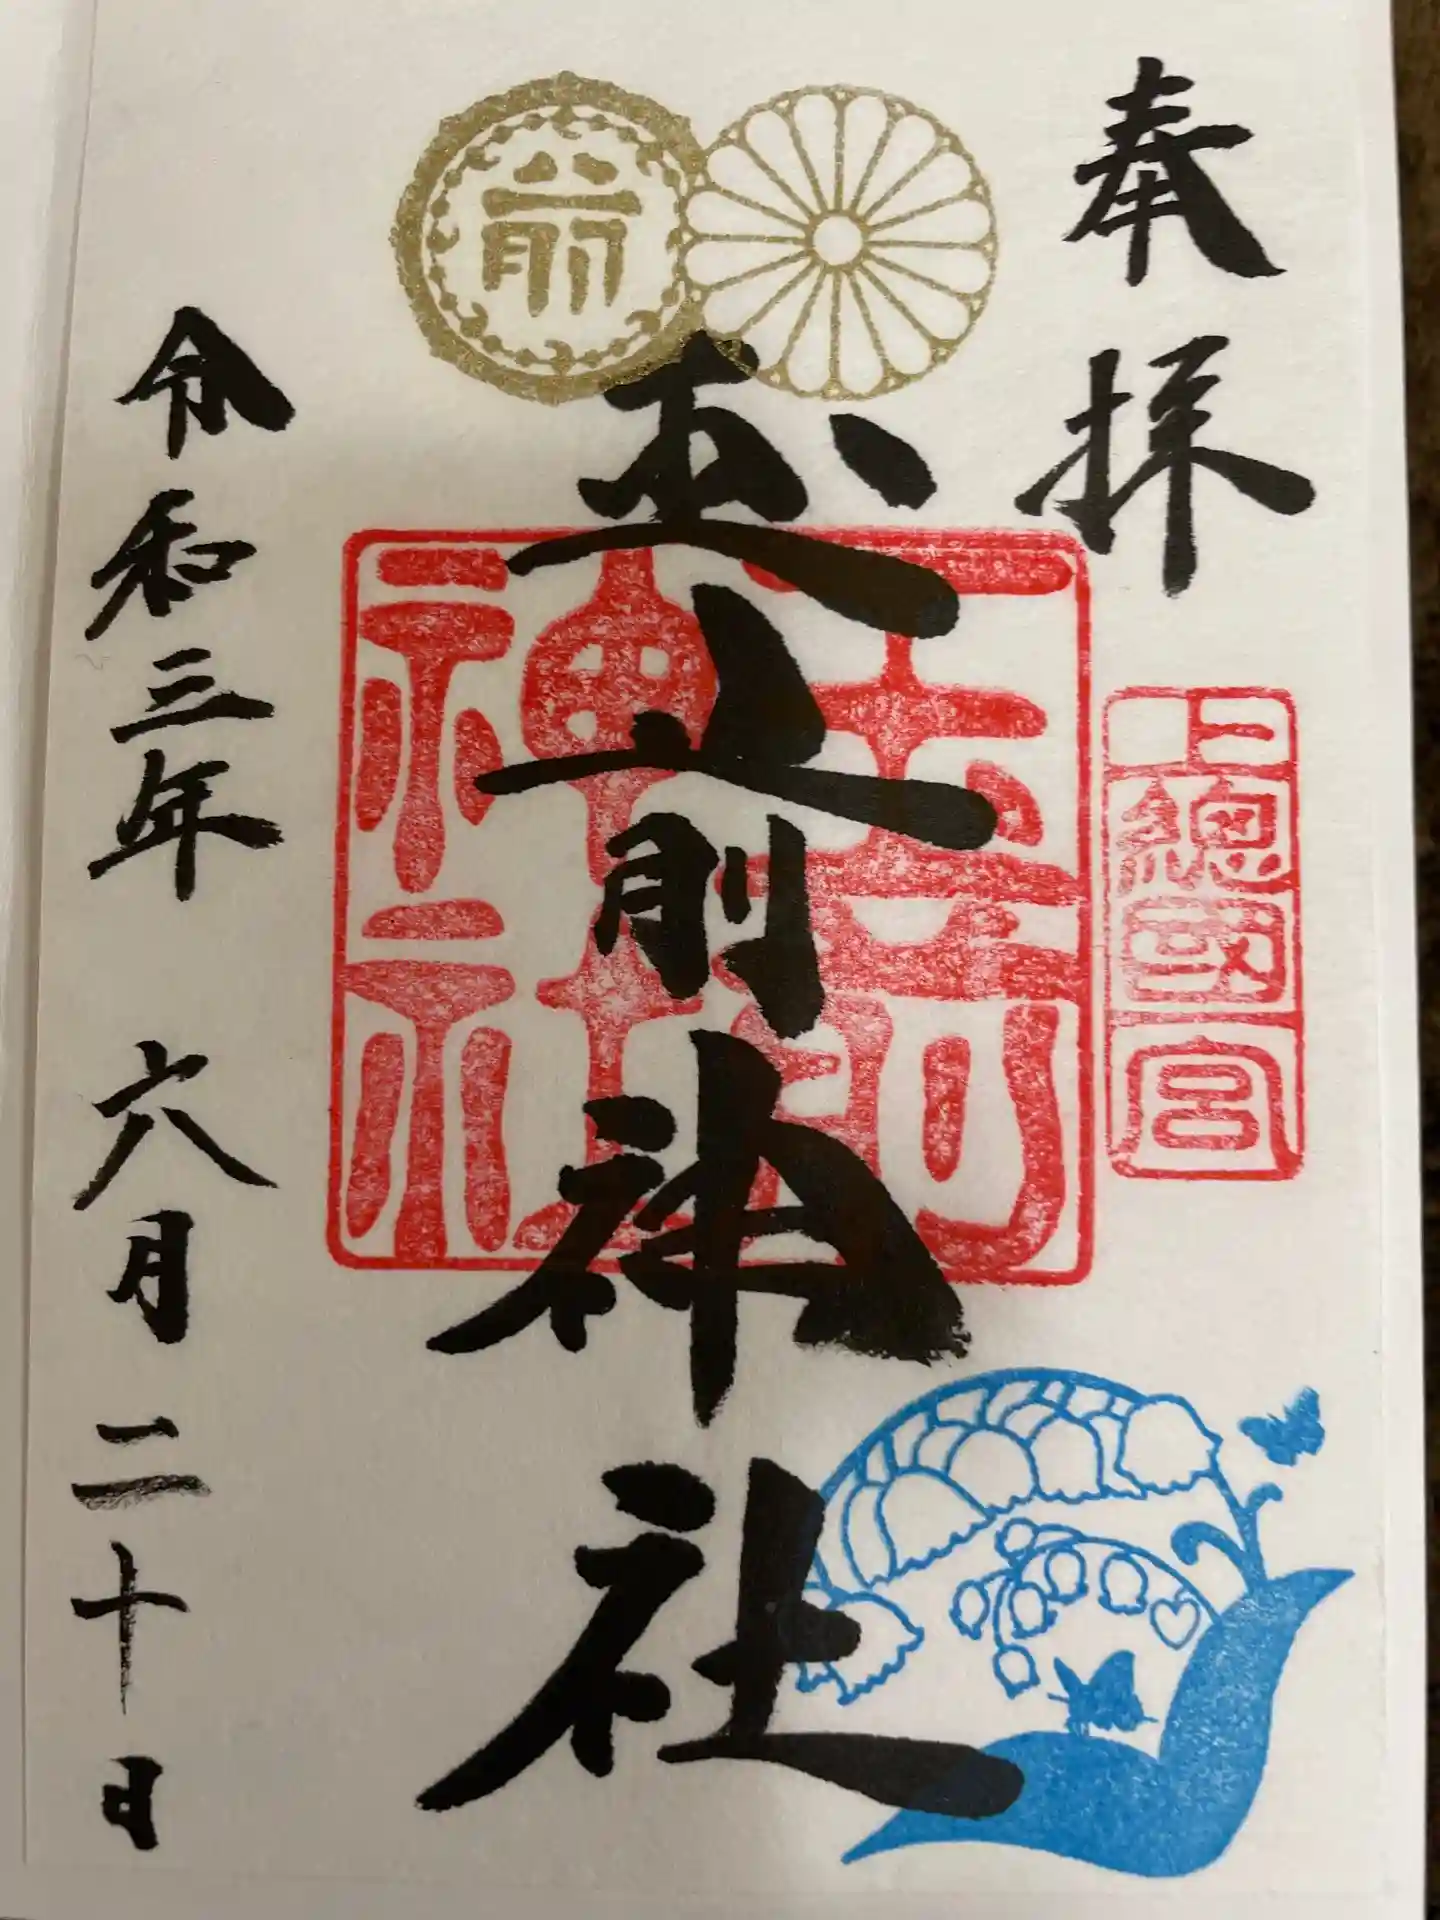 奉拝
上總國一宮
前
玉前神社
玉前神社
令和三年 六月二十日